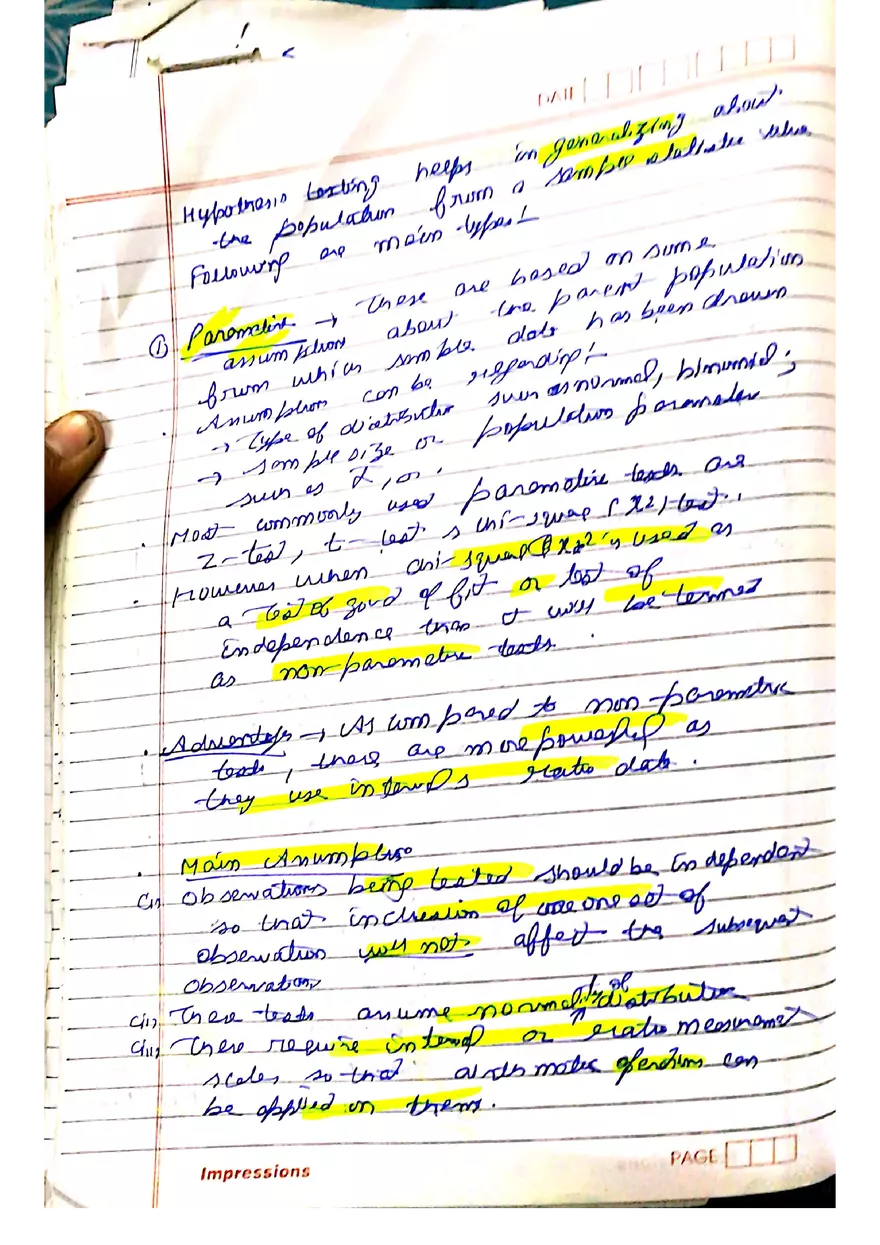 DATE
Hypothesis testing helps in generalizing about
the population from a sample statistic
Following are main types!
① Parametric → These are based on some
assumptions about the parent population
from which sample data has been drawn
· Assumption can be regarding!
→ Type of distribution such as normal, binomial;
→ sample size or population parameter
such as
· Most commonly used parametric tests are
Z-test, t-test & chi-square (x2) test.
· However when chi-square x2 is used as
a test of good of fit or test of
independence then it will be termed
as non-parametric tests.
· Advantages → As compared to non-parametric
tests, these are more powerful as
they use interval & ratio data.
· Main Assumptions
(i) Observations being tested should be independent
so that inclusion of one set of
observation will not affect the subsequent
observation
(ii) These tests assume normality of distribution
(iii) These require interval or ratio measurement
scales so that arithmetic operations can
be applied on them.
Impressions
PAGE